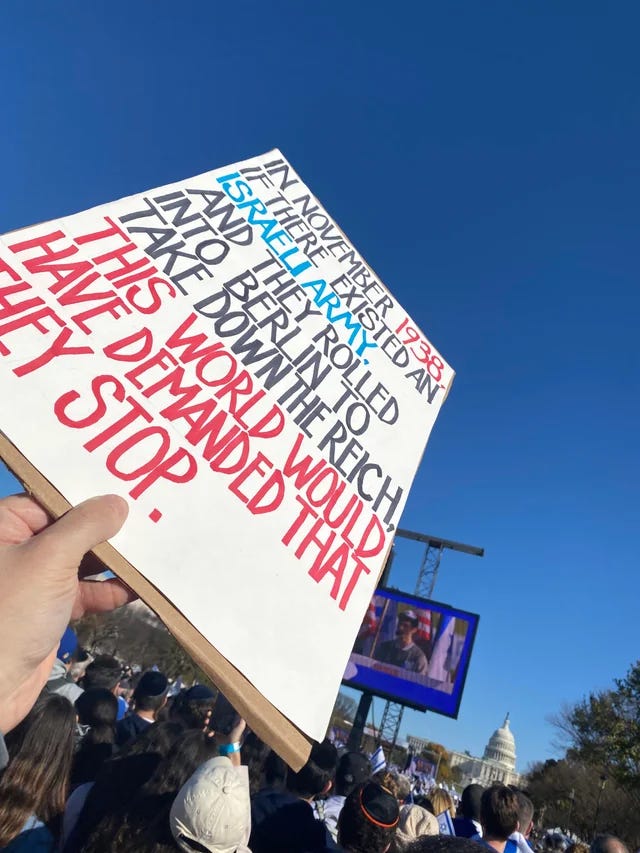 IN NOVEMBER 1938,
IF THERE EXISTED AN
ISRAELI ARMY,
AND THEY ROLLED
INTO BERLIN TO
TAKE DOWN THE REICH,
THIS WORLD WOULD
HAVE DEMANDED THAT
THEY STOP.